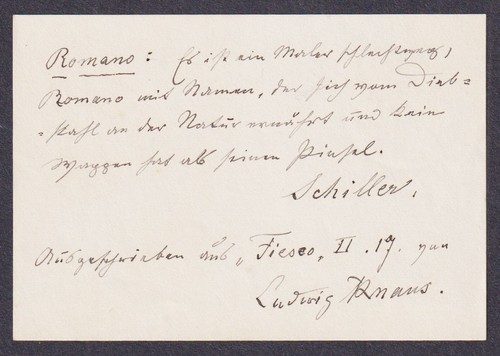 Romano: Es ist ein Maler schlechtweg,
Romano mit Namen, der sich vom Dieb=
=stahl an der Natur ernährt und kein
Wappen hat als seinen Pinsel.
Schiller.
Ausgeschrieben aus „Fiesco„ II. 17. von
Ludwig Knaus.